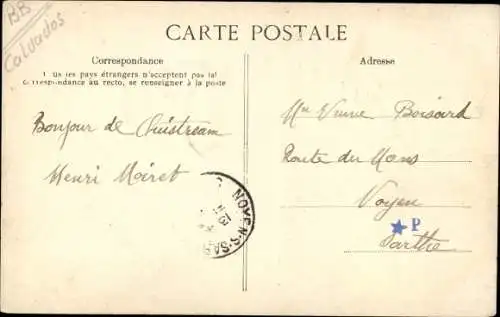 BB
Calvados
CARTE POSTALE
Correspondance
Tous les pays étrangers n'acceptent pas la
correspondance au recto, se renseigner à la poste
Adresse
Bonjour de Ouistream
Henri Moiret
Mme Veuve Boisard
Route du Mans
Noyen
Sarthe
P
NOYEN-S-SAR
13